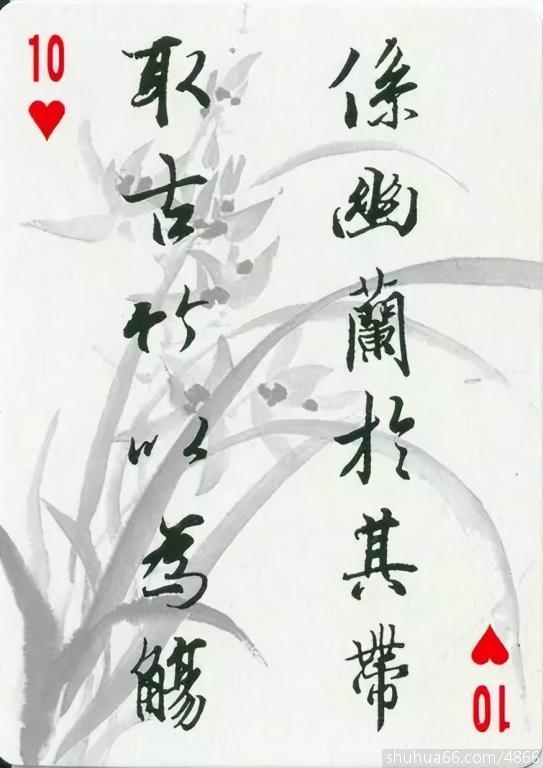 10
係幽蘭於其帶
取古竹以為觴
10
shuhua66.com/4866